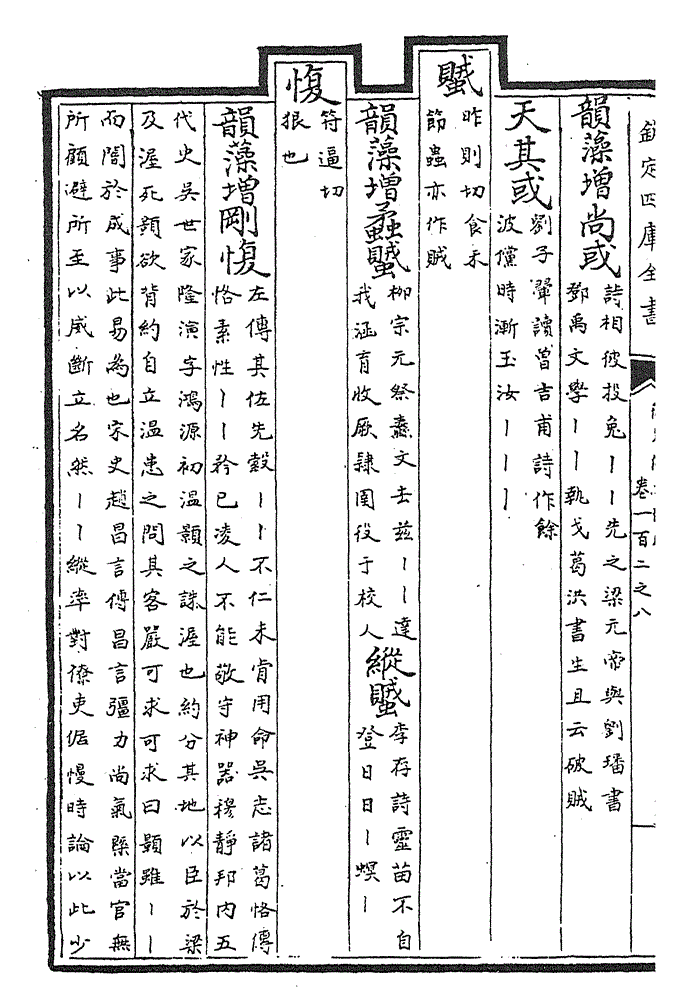 欽定四庫全書
卷一百二之八
韻藻增尚或
詩相彼投兔丨丨先之梁元帝與劉璠書
鄧禹文學丨丨執戈葛洪書生且云破賊
天其或
劉子翬讀曽吉甫詩作餘
波儻時漸玉汝丨丨丨
䘌
昨則切食禾
節蟲亦作賊
韻藻增蟊䘌
柳宗元祭纛文去兹丨丨達
我涵育收厥隸圉役于校人
縱䘌
李存詩靈苗不自
登日日丨螟丨
愎
符逼切
狠也
韻藻增剛愎
左傳其佐先縠丨丨不仁未肯用命吳志諸葛恪傳
恪素性丨丨矜已凌人不能敬守神器穆靜邦内五
代史吳世家隆演字鴻源初温顥之誅渥也約分其地以臣於梁
及渥死顥欲背約自立温患之問其客嚴可求可求曰顥雖丨丨
而闇於成事此易為也宋史趙昌言傳昌言彊力尚氣槩當官無
所顧避所至以威斷立名然丨丨縱率對僚吏倨慢時論以此少